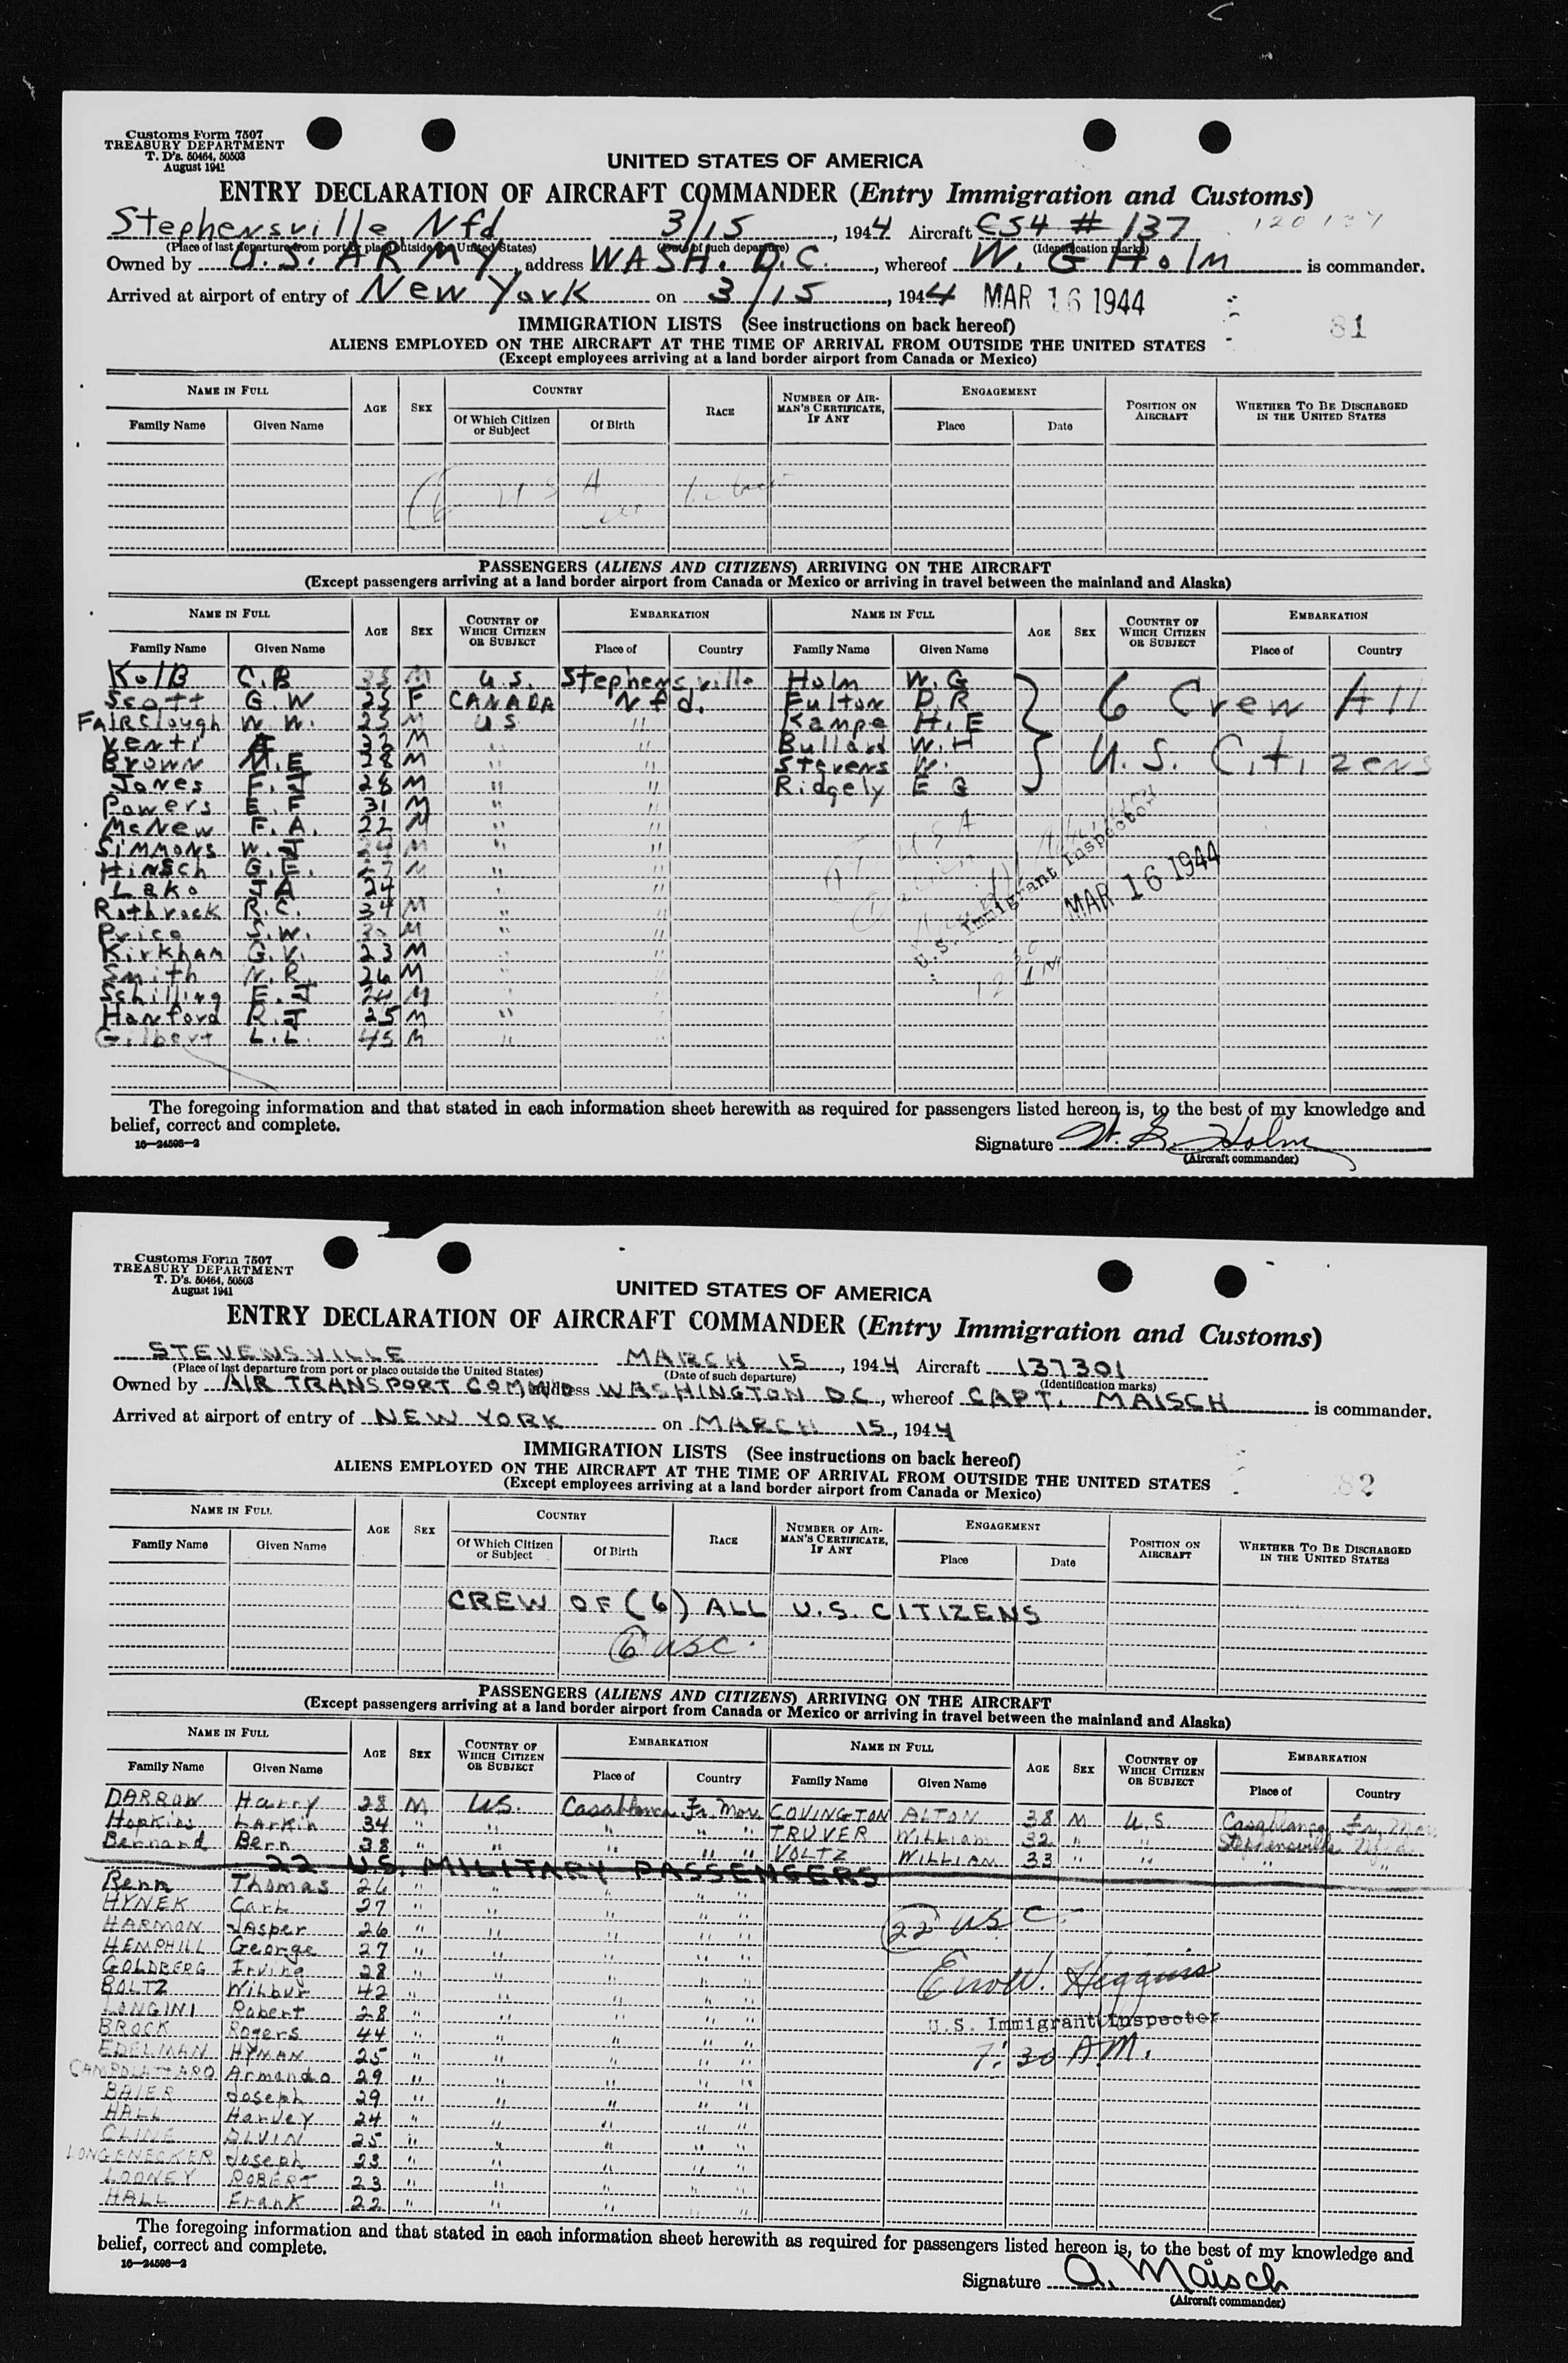 Customs Form 7507
TREASURY DEPARTMENT
T. D's. 50464, 50503
August 1941
UNITED STATES OF AMERICA
ENTRY DECLARATION OF AIRCRAFT COMMANDER (Entry Immigration and Customs)
Stephensville, Nfd 3/15, 1944 Aircraft C54 # 137
(Place of last departure from port or place outside the United States) (Date of such departure) (Identification marks)
Owned by U.S. ARMY, address WASH. D.C., whereof W. G Holm is commander.
Arrived at airport of entry of New York on 3/15, 1944 MAR 16 1944
81
IMMIGRATION LISTS (See instructions on back hereof)
ALIENS EMPLOYED ON THE AIRCRAFT AT THE TIME OF ARRIVAL FROM OUTSIDE THE UNITED STATES
(Except employees arriving at a land border airport from Canada or Mexico)
NAME IN FULL AGE SEX COUNTRY RACE NUMBER OF AIRMAN'S CERTIFICATE, IF ANY ENGAGEMENT POSITION ON AIRCRAFT WHETHER TO BE DISCHARGED IN THE UNITED STATES
Family Name Given Name Of Which Citizen or Subject Of Birth Place Date
PASSENGERS (ALIENS AND CITIZENS) ARRIVING ON THE AIRCRAFT
(Except passengers arriving at a land border airport from Canada or Mexico or arriving in travel between the mainland and Alaska)
NAME IN FULL AGE SEX COUNTRY OF WHICH CITIZEN OR SUBJECT EMBARKATION NAME IN FULL AGE SEX COUNTRY OF WHICH CITIZEN OR SUBJECT EMBARKATION
Family Name Given Name Place of Country Family Name Given Name Place of Country
KolB C.B M U.S. Stephensville Holm W.G
Scott G.W 25 F CANADA Nfd. Fulton D.R 6 Crew All
FAIRClough W.W. 25 M US " Kampe H.E
Venti A 32 M " " Bullard W.H U.S. Citizens
Brown M.E 28 M " " Stevens W.
Jones F.J 28 M " " Ridgely E G
Powers E.F 31 M " "
McNew F.A. 22 M " "
SIMMONS W.J M " "
Hinsch G.E. 27 M " "
Lako J A 24 " "
Rothrock R.C. 34 M " "
Price S.W. M " "
Kirkham G.V. 23 M " "
Smith N.R. 26 M " "
Schilling E.J 24 M " "
Hanford R.J 25 M " "
Gilbert L.L. 45 M " "
U.S. Immigrant Inspector
MAR 16 1944
The foregoing information and that stated in each information sheet herewith as required for passengers listed hereon is, to the best of my knowledge and
belief, correct and complete.
16—24598-2
Signature W. G. Holm
(Aircraft commander)
Customs Form 7507
TREASURY DEPARTMENT
T. D's. 50464, 50503
August 1941
UNITED STATES OF AMERICA
ENTRY DECLARATION OF AIRCRAFT COMMANDER (Entry Immigration and Customs)
STEVENSVILLE MARCH 15, 1944 Aircraft 137301
(Place of last departure from port or place outside the United States) (Date of such departure) (Identification marks)
Owned by AIR TRANSPORT COMMND address WASHINGTON D.C., whereof CAPT. MAISCH is commander.
Arrived at airport of entry of NEW YORK on MARCH 15, 1944
82
IMMIGRATION LISTS (See instructions on back hereof)
ALIENS EMPLOYED ON THE AIRCRAFT AT THE TIME OF ARRIVAL FROM OUTSIDE THE UNITED STATES
(Except employees arriving at a land border airport from Canada or Mexico)
NAME IN FULL AGE SEX COUNTRY RACE NUMBER OF AIRMAN'S CERTIFICATE, IF ANY ENGAGEMENT POSITION ON AIRCRAFT WHETHER TO BE DISCHARGED IN THE UNITED STATES
Family Name Given Name Of Which Citizen or Subject Of Birth Place Date
CREW OF (6) ALL U.S. CITIZENS
6 USC.
PASSENGERS (ALIENS AND CITIZENS) ARRIVING ON THE AIRCRAFT
(Except passengers arriving at a land border airport from Canada or Mexico or arriving in travel between the mainland and Alaska)
NAME IN FULL AGE SEX COUNTRY OF WHICH CITIZEN OR SUBJECT EMBARKATION NAME IN FULL AGE SEX COUNTRY OF WHICH CITIZEN OR SUBJECT EMBARKATION
Family Name Given Name Place of Country Family Name Given Name Place of Country
DARROW Harry 28 M U.S. Casablanca Fr. Mor. COVINGTON ALTON 38 M U.S. Casablanca Fr. Mor.
Hopkins Larkin 34 " " " " " TRUVER William 32 " " Stephensville Nfd.
Bernard Bern 38 " " " " " VOLTZ WILLIAN 33 " " " "
22 U.S. MILITARY PASSENGERS
Renn Thomas 26 " " " " "
HYNEK Carl 27 " " " " "
HARMON Jasper 26 " " " " "
HEMPHILL George 27 " " " " "
GOLDBERG Irving 28 " " " " "
BOLTZ Wilbur 42 " " " " "
LONGINI Robert 28 " " " " "
BROCK Rogers 44 " " " " "
EDELMAN HYMAN 25 " " " " "
CAMPOLATTARO Armando 29 " " " " "
BAIER Joseph 29 " " " " "
HALL Harvey 24 " " " " "
CLINE ALVIN 25 " " " " "
LONGENECKER Joseph 23 " " " " "
LOONEY ROBERT 23 " " " " "
HALL Frank 22 " " " " "
22 USC
Higgins
U.S. Immigrant Inspector
7:30 A.M.
The foregoing information and that stated in each information sheet herewith as required for passengers listed hereon is, to the best of my knowledge and
belief, correct and complete.
16—24598-2
Signature A. Maisch
(Aircraft commander)